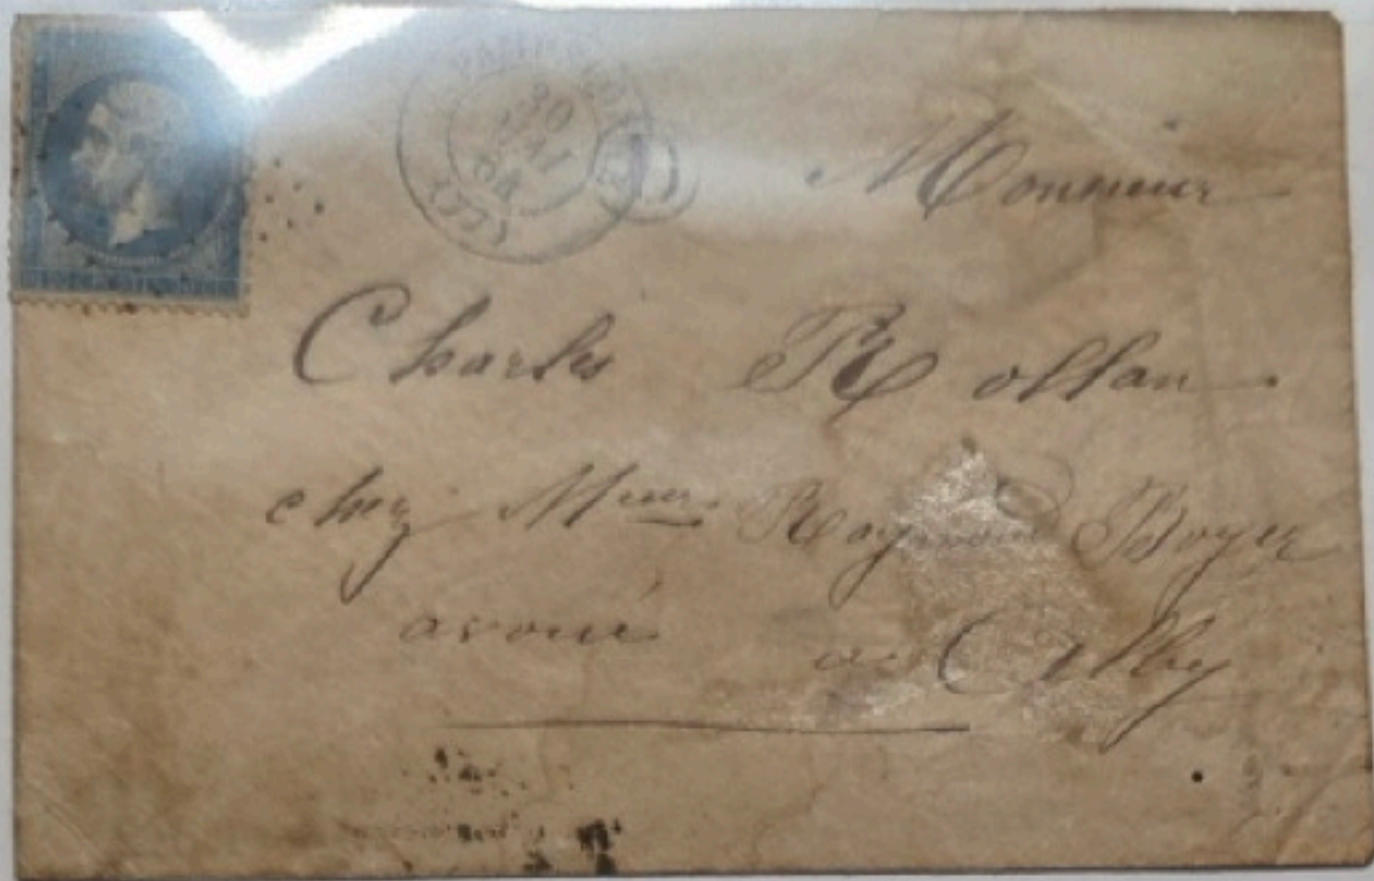 20
MAI
64
Monsieur
Charles Rollan
chez Mme Raymond Boyer
avoué a Alby